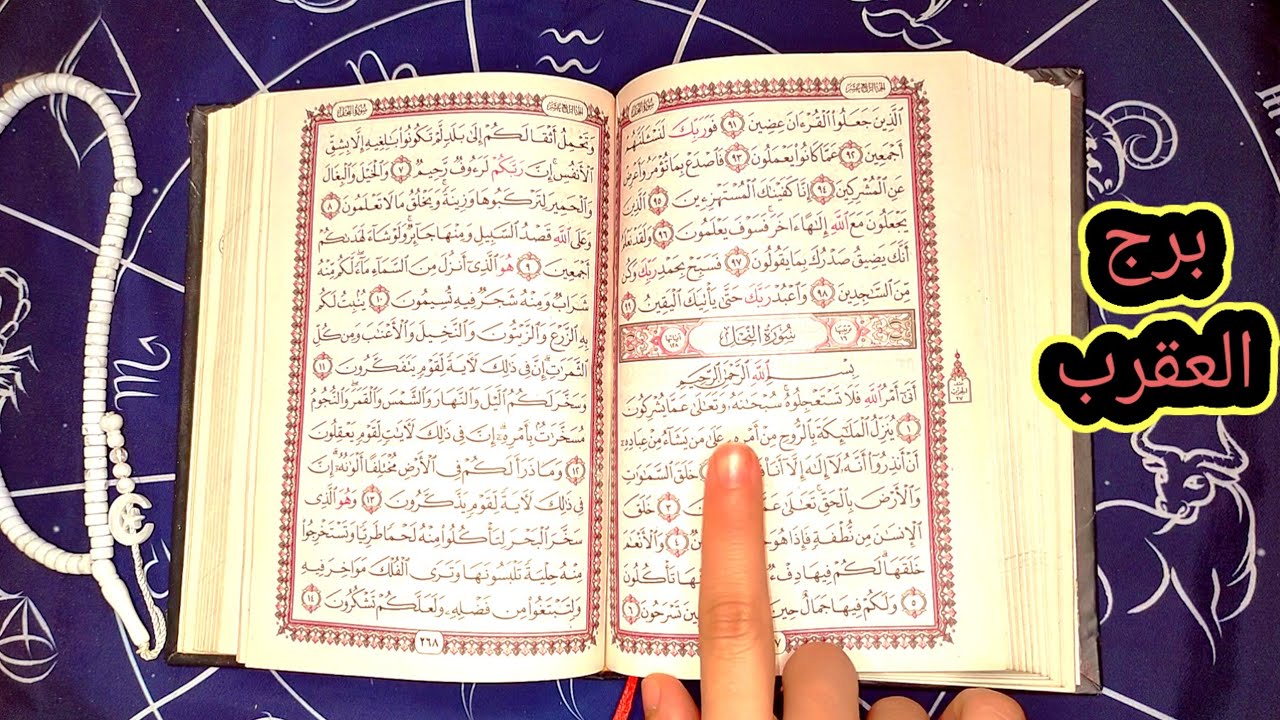 برج
العقرب
الجزء الرابع عشر
الَّذِينَ جَعَلُوا الْقُرْءَانَ عِضِينَ ٩١ فَوَرَبِّكَ لَنَسْـَٔلَنَّهُمْ
أَجْمَعِينَ ٩٢ عَمَّا كَانُوا يَعْمَلُونَ ٩٣ فَاصْدَعْ بِمَا تُؤْمَرُ وَأَعْرِضْ
عَنِ الْمُشْرِكِينَ ٩٤ إِنَّا كَفَيْنَٰكَ الْمُسْتَهْزِءِينَ ٩٥ الَّذِينَ
يَجْعَلُونَ مَعَ اللَّهِ إِلَٰهًا ءَاخَرَ فَسَوْفَ يَعْلَمُونَ ٩٦ وَلَقَدْ نَعْلَمُ
أَنَّكَ يَضِيقُ صَدْرُكَ بِمَا يَقُولُونَ ٩٧ فَسَبِّحْ بِحَمْدِ رَبِّكَ وَكُن
مِّنَ السَّٰجِدِينَ ٩٨ وَاعْبُدْ رَبَّكَ حَتَّىٰ يَأْتِيَكَ الْيَقِينُ ٩٩
سُورَةُ النَّحْلِ
بِسْمِ اللَّهِ الرَّحْمَٰنِ الرَّحِيمِ
أَتَىٰ أَمْرُ اللَّهِ فَلَا تَسْتَعْجِلُوهُ سُبْحَٰنَهُ وَتَعَٰلَىٰ عَمَّا يُشْرِكُونَ
١ يُنَزِّلُ الْمَلَٰٓئِكَةَ بِالرُّوحِ مِنْ أَمْرِهِ عَلَىٰ مَن يَشَآءُ مِنْ عِبَادِهِ
أَنْ أَنذِرُوا أَنَّهُ لَآ إِلَٰهَ إِلَّآ أَنَا خَلَقَ السَّمَٰوَٰتِ
وَالْأَرْضَ بِالْحَقِّ تَعَٰلَىٰ ٣ خَلَقَ
الْإِنسَٰنَ مِن نُّطْفَةٍ فَإِذَا هُوَ ٤ وَالْأَنْعَٰمَ
خَلَقَهَا لَكُمْ فِيهَا دِفْءٌ تَأْكُلُونَ
٥ وَلَكُمْ فِيهَا جَمَالٌ حِينَ تَسْرَحُونَ ٦
سورة النحل
الجزء الرابع عشر
وَتَحْمِلُ أَثْقَالَكُمْ إِلَىٰ بَلَدٍ لَّمْ تَكُونُوا بَٰلِغِيهِ إِلَّا بِشِقِّ
الْأَنفُسِ إِنَّ رَبَّكُمْ لَرَءُوفٌ رَّحِيمٌ ٧ وَالْخَيْلَ وَالْبِغَالَ
وَالْحَمِيرَ لِتَرْكَبُوهَا وَزِينَةً وَيَخْلُقُ مَا لَا تَعْلَمُونَ ٨
وَعَلَى اللَّهِ قَصْدُ السَّبِيلِ وَمِنْهَا جَآئِرٌ وَلَوْ شَآءَ لَهَدَىٰكُمْ
أَجْمَعِينَ ٩ هُوَ الَّذِي أَنزَلَ مِنَ السَّمَآءِ مَآءً لَّكُم مِّنْهُ
شَرَابٌ وَمِنْهُ شَجَرٌ فِيهِ تُسِيمُونَ ١٠ يُنبِتُ لَكُم
بِهِ الزَّرْعَ وَالزَّيْتُونَ وَالنَّخِيلَ وَالْأَعْنَٰبَ وَمِن كُلِّ
الثَّمَرَٰتِ إِنَّ فِي ذَٰلِكَ لَءَايَةً لِّقَوْمٍ يَتَفَكَّرُونَ ١١
وَسَخَّرَ لَكُمُ الَّيْلَ وَالنَّهَارَ وَالشَّمْسَ وَالْقَمَرَ وَالنُّجُومُ
مُسَخَّرَٰتٌ بِأَمْرِهِ إِنَّ فِي ذَٰلِكَ لَءَايَٰتٍ لِّقَوْمٍ يَعْقِلُونَ
١٢ وَمَا ذَرَأَ لَكُمْ فِي الْأَرْضِ مُخْتَلِفًا أَلْوَٰنُهُ إِنَّ
فِي ذَٰلِكَ لَءَايَةً لِّقَوْمٍ يَذَّكَّرُونَ ١٣ وَهُوَ الَّذِي
سَخَّرَ الْبَحْرَ لِتَأْكُلُوا مِنْهُ لَحْمًا طَرِيًّا وَتَسْتَخْرِجُوا
مِنْهُ حِلْيَةً تَلْبَسُونَهَا وَتَرَى الْفُلْكَ مَوَاخِرَ فِيهِ
وَلِتَبْتَغُوا مِن فَضْلِهِ وَلَعَلَّكُمْ تَشْكُرُونَ ١٤
٢٦٨